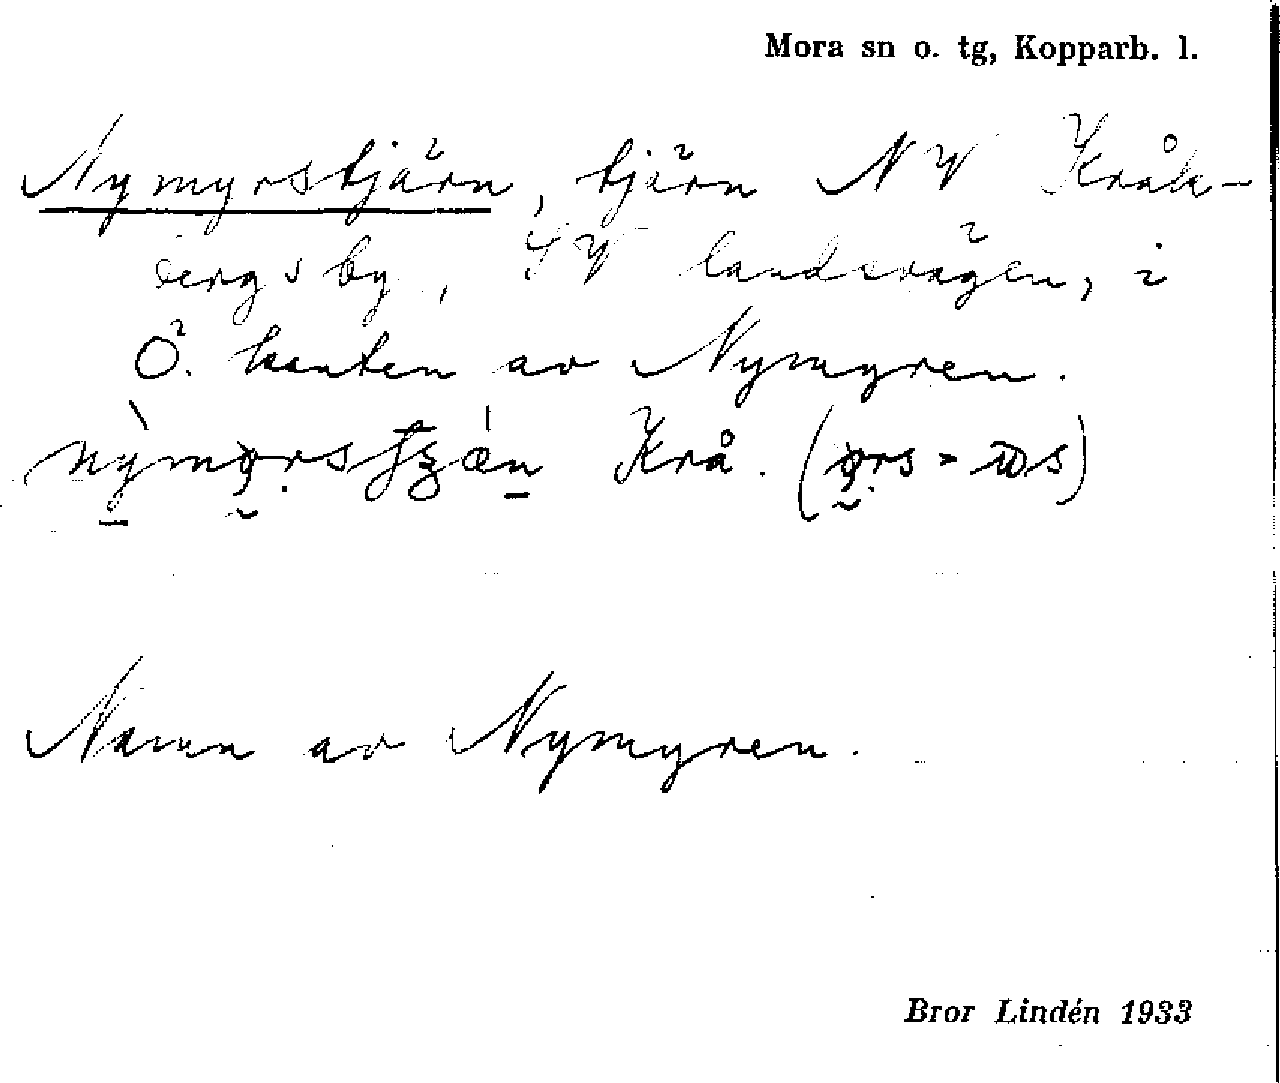 Mora sn o. tg, Kopparb. l.
Nymyrstjärn, tjärn NV Kråk-
bergs by, SV landsvägen, i
Ö. kanten av Nymyren.
Krå.
Namn av Nymyren.
Bror Lindén 1933